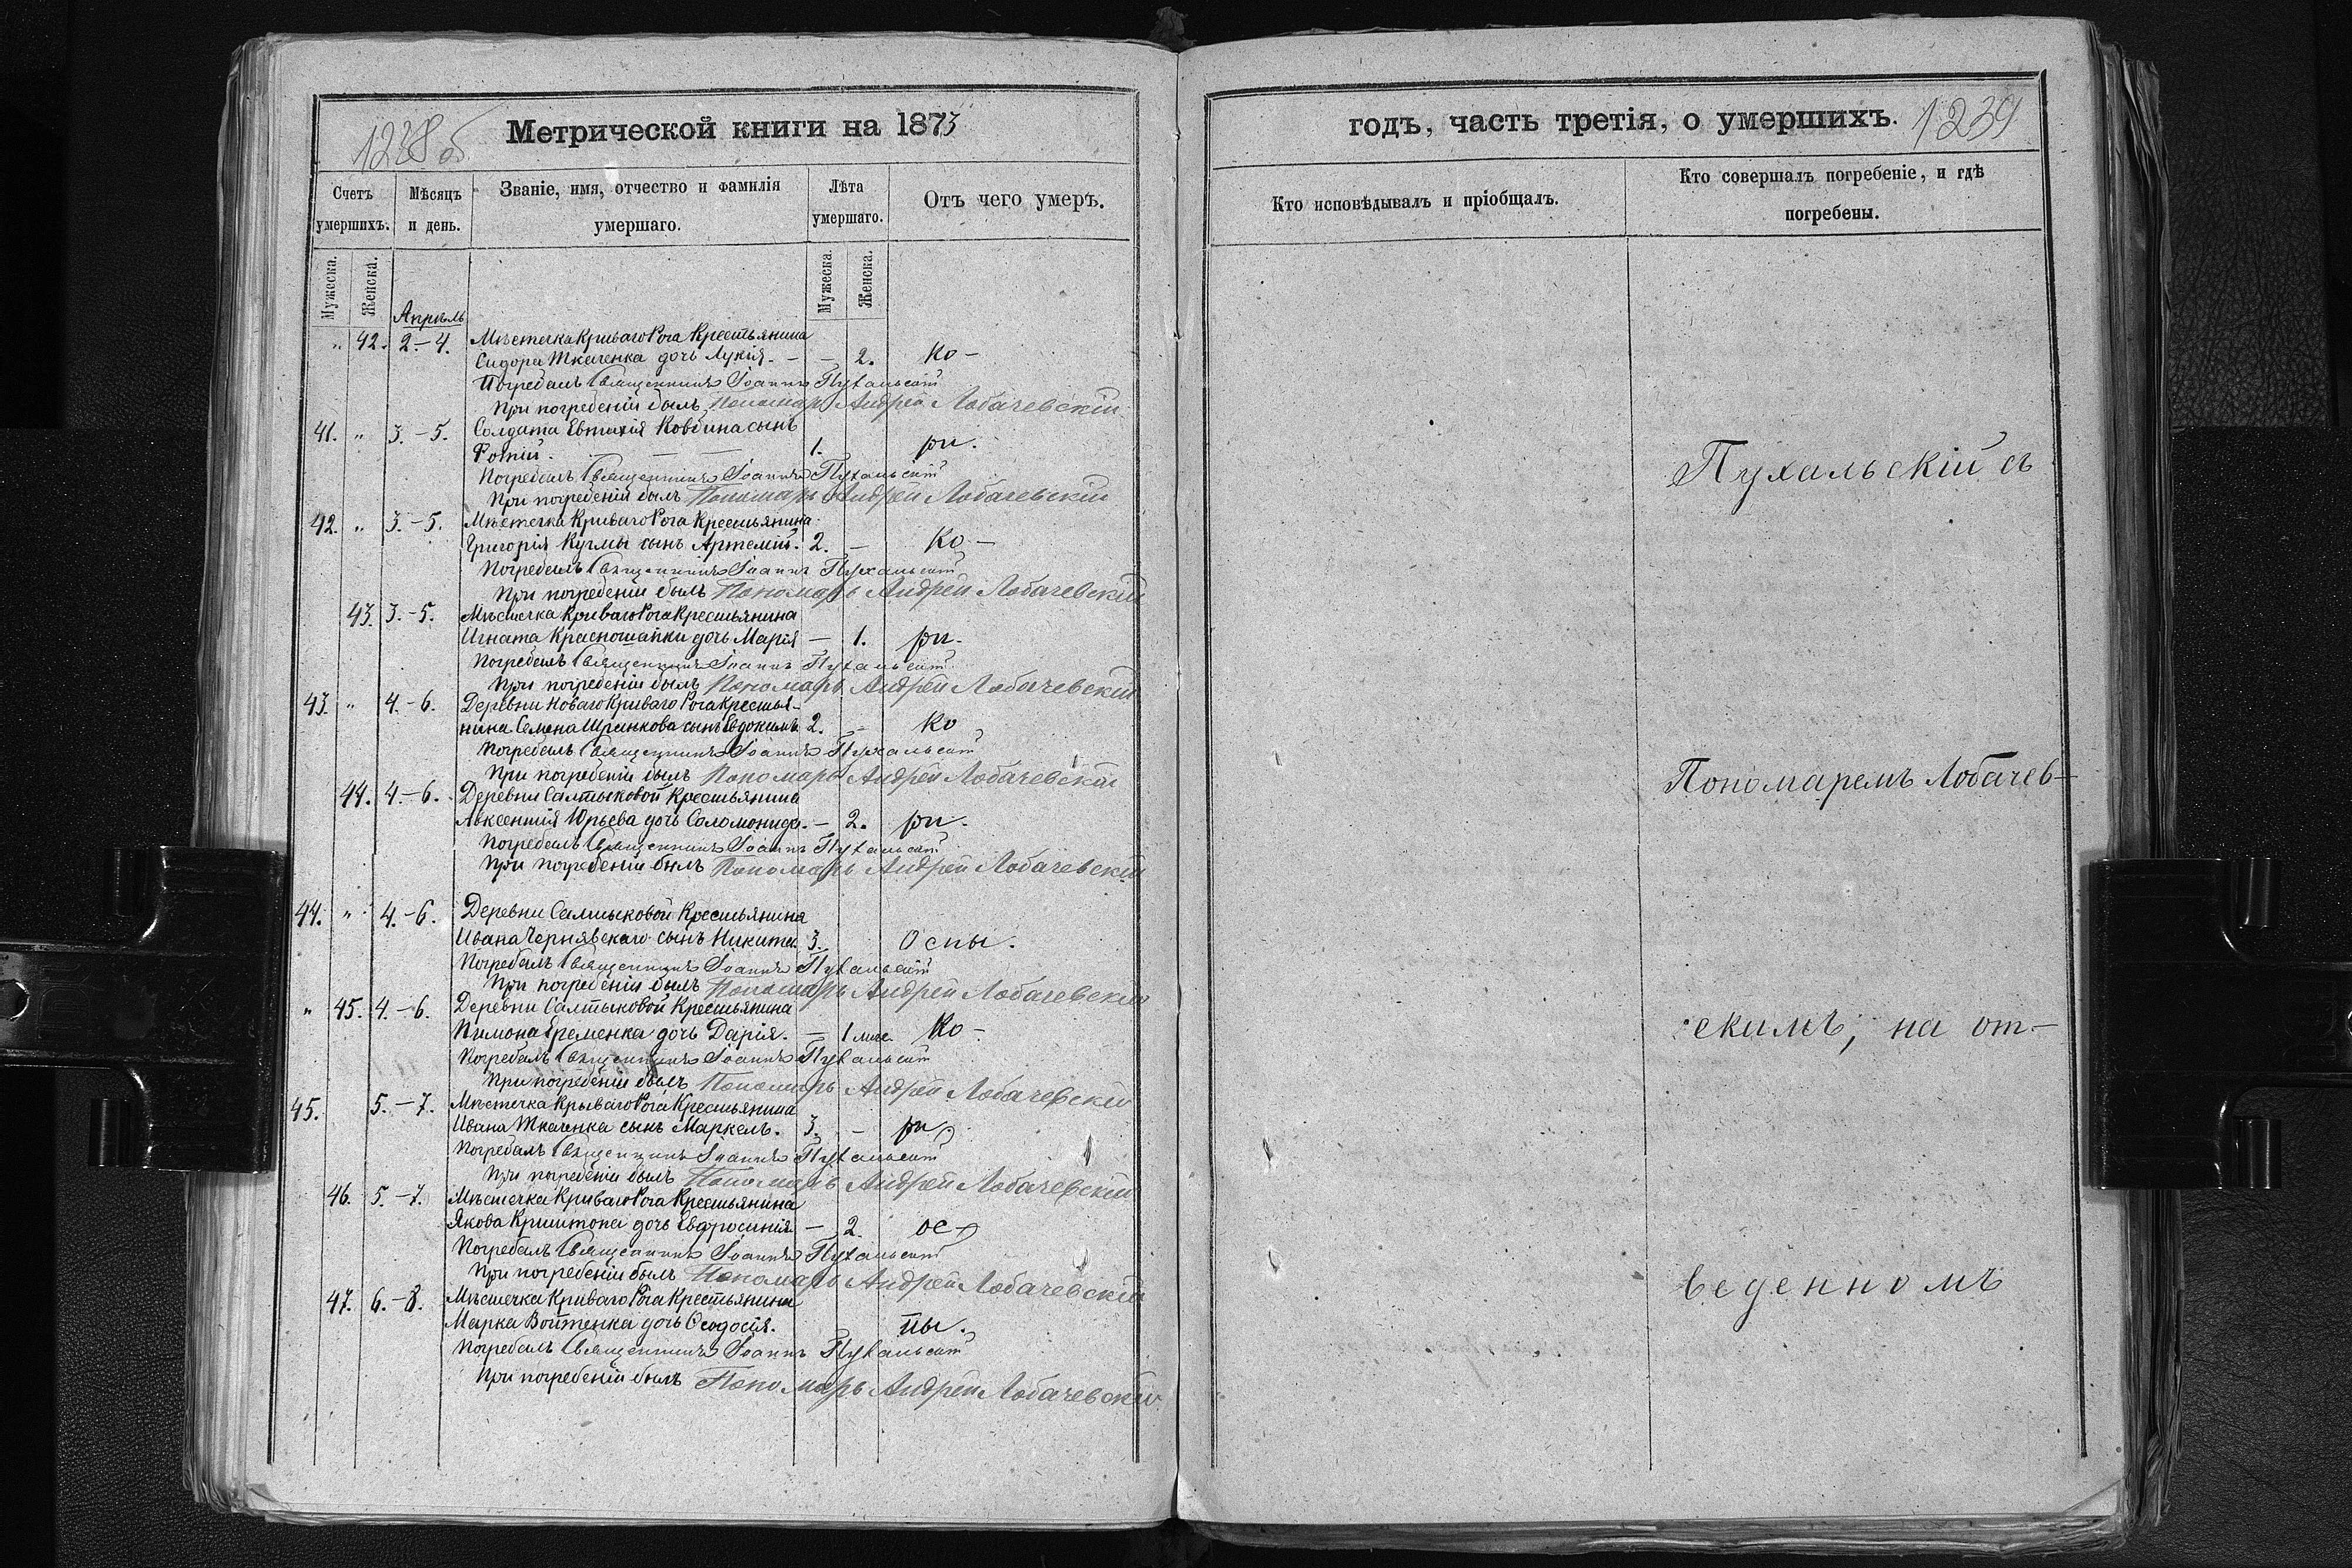 1238 об
Метрической книги на 1873
Счетъ умершихъ.
Мѣсяцъ и день.
Званіе, имя, отчество и фамилія умершаго.
Лѣта умершаго.
Отъ чего умеръ.
Мужеска.
Женска.
Мужеска
Женска.
Апрѣль
" 42. 2.-4. Мѣстечка Криваго Рога Крестьянина
Сидора Ткаченка дочь Лукія. - - 2. Ко-
Погребалъ Священникъ Іоаннъ Пухальскій
При погребеніи былъ Пономарь Андрей Лобачевскій
41. " 3.-5. Солдата Евтихія Ковбина сынъ
Фотій. - - 1. ри.
Погребалъ Священникъ Іоаннъ Пухальскій
При погребеніи былъ Пономарь Андрей Лобачевскій
42. " 3.-5. Мѣстечка Криваго Рога Крестьянина
Григорія Кучмы сынъ Артемій. 2. - Ко-
Погребалъ Священникъ Іоаннъ Пухальскій
При погребеніи былъ Пономарь Андрей Лобачевскій
43. 3.-5. Мѣстечка Криваго Рога Крестьянина
Игната Красношапки дочь Марія - 1. ри.
Погребалъ Священникъ Іоаннъ Пухальскій
При погребеніи былъ Пономарь Андрей Лобачевскій
43. " 4.-6. Деревни Новаго Криваго Рога Крестья-
нина Семена Шранкова сынъ Евдокимъ 2. - Ко
Погребалъ Священникъ Іоаннъ Пухальскій
При погребеніи былъ Пономарь Андрей Лобачевскій
44. 4.-6. Деревни Салтыковой Крестьянина
Авксентія Юрьева дочь Соломонида. - 2. ри.
Погребалъ Священникъ Іоаннъ Пухальскій
При погребеніи былъ Пономарь Андрей Лобачевскій
44. " 4.-6. Деревни Салтыковой Крестьянина
Ивана Чернявскаго сынъ Никита 3. Оспы.
Погребалъ Священникъ Іоаннъ Пухальскій
При погребеніи былъ Пономарь Андрей Лобачевскій
" 45. 4.-6. Деревни Салтыковой Крестьянина
Пимона Еременка дочь Дарія. - 1 мѣс. Ко-
Погребалъ Священникъ Іоаннъ Пухальскій
При погребеніи былъ Пономарь Андрей Лобачевскій
45. 5.-7. Мѣстечка Крываго Рога Крестьянина
Ивана Ткаченка сынъ Маркелъ. 3. - ри
Погребалъ Священникъ Іоаннъ Пухальскій
При погребеніи былъ Пономарь Андрей Лобачевскій
46. 5.-7. Мѣстечка Криваго Рога Крестьянина
Якова Криштопа дочь Евфросинія - 2. ос-
Погребалъ Священникъ Іоаннъ Пухальскій
При погребеніи былъ Пономарь Андрей Лобачевскій
47. 6.-8. Мѣстечка Криваго Рога Крестьянина
Марка Войтенка дочь Ѳеодосія. пы.
Погребалъ Священникъ Іоаннъ Пухальскій
При погребеніи былъ Пономарь Андрей Лобачевскій
годъ, часть третія, о умершихъ. 1239
Кто исповѣдывалъ и пріобщалъ.
Кто совершалъ погребеніе, и гдѣ погребены.
Пухальскій съ
Пономаремъ Лобачев-
скимъ, на от-
веденномъ